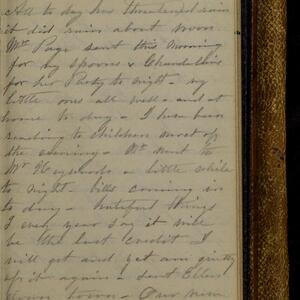 All to day has threatened rain
it did rain about noon.
Mrs Page sent this morning
for my spoons & Chandeliers
for her Party to night - my
little ones all well - and at
home to day - I have been
reading to children most of
the evening - Mr went to
Mr Heywoods a little while
to night - bills coming in
to day - hateful things
I every year say it will
be the last Credit I
will get and yet am guilty
of it again - sent Ellen
down town - Our